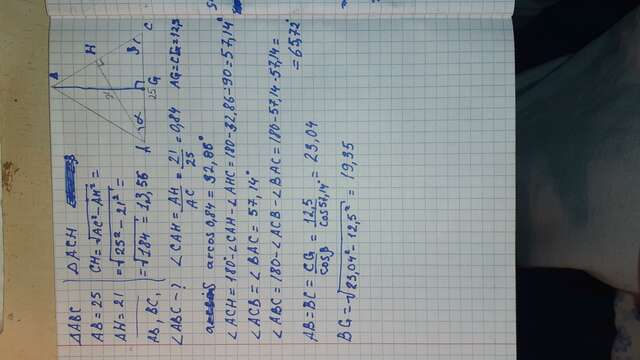 △ABC
AB = 25
AH = 21
AB, BC,
∠ABC - ?
△ACH
CH = √AC² - AH² =
= √25² - 21² =
= √184 = 13,56
B
H
C
β
α
A
25
G
∠CAH = AH/AC = 21/25 = 0,84
AG = CG = 12,5
arcos 0,84 = 32,86°
∠ACH = 180° - ∠CAH - ∠AHC = 180 - 32,86 - 90 = 57,14°
∠ACB = ∠BAC = 57,14°
∠ABC = 180 - ∠ACB - ∠BAC = 180 - 57,14 - 57,14 =
= 65,72°
AB = BC = CG/cosβ = 12,5/cos57,14° = 23,04
BG = √23,04² - 12,5² = 19,35